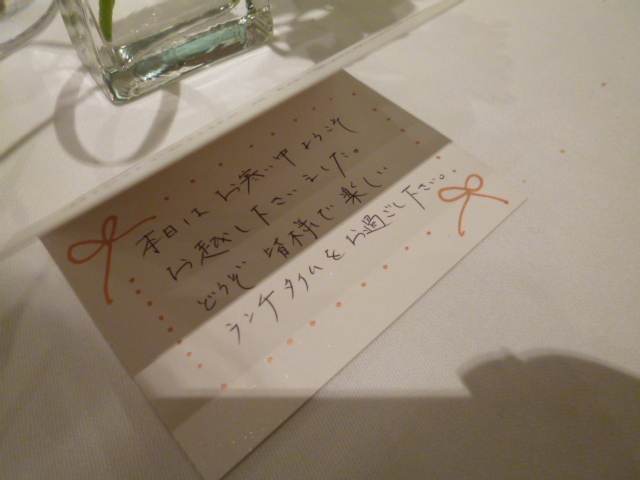 本日は お寒い中 ようこそ
お越し下さいました。
どうぞ 皆様で楽しい
ランチタイムを お過ごし下さい。